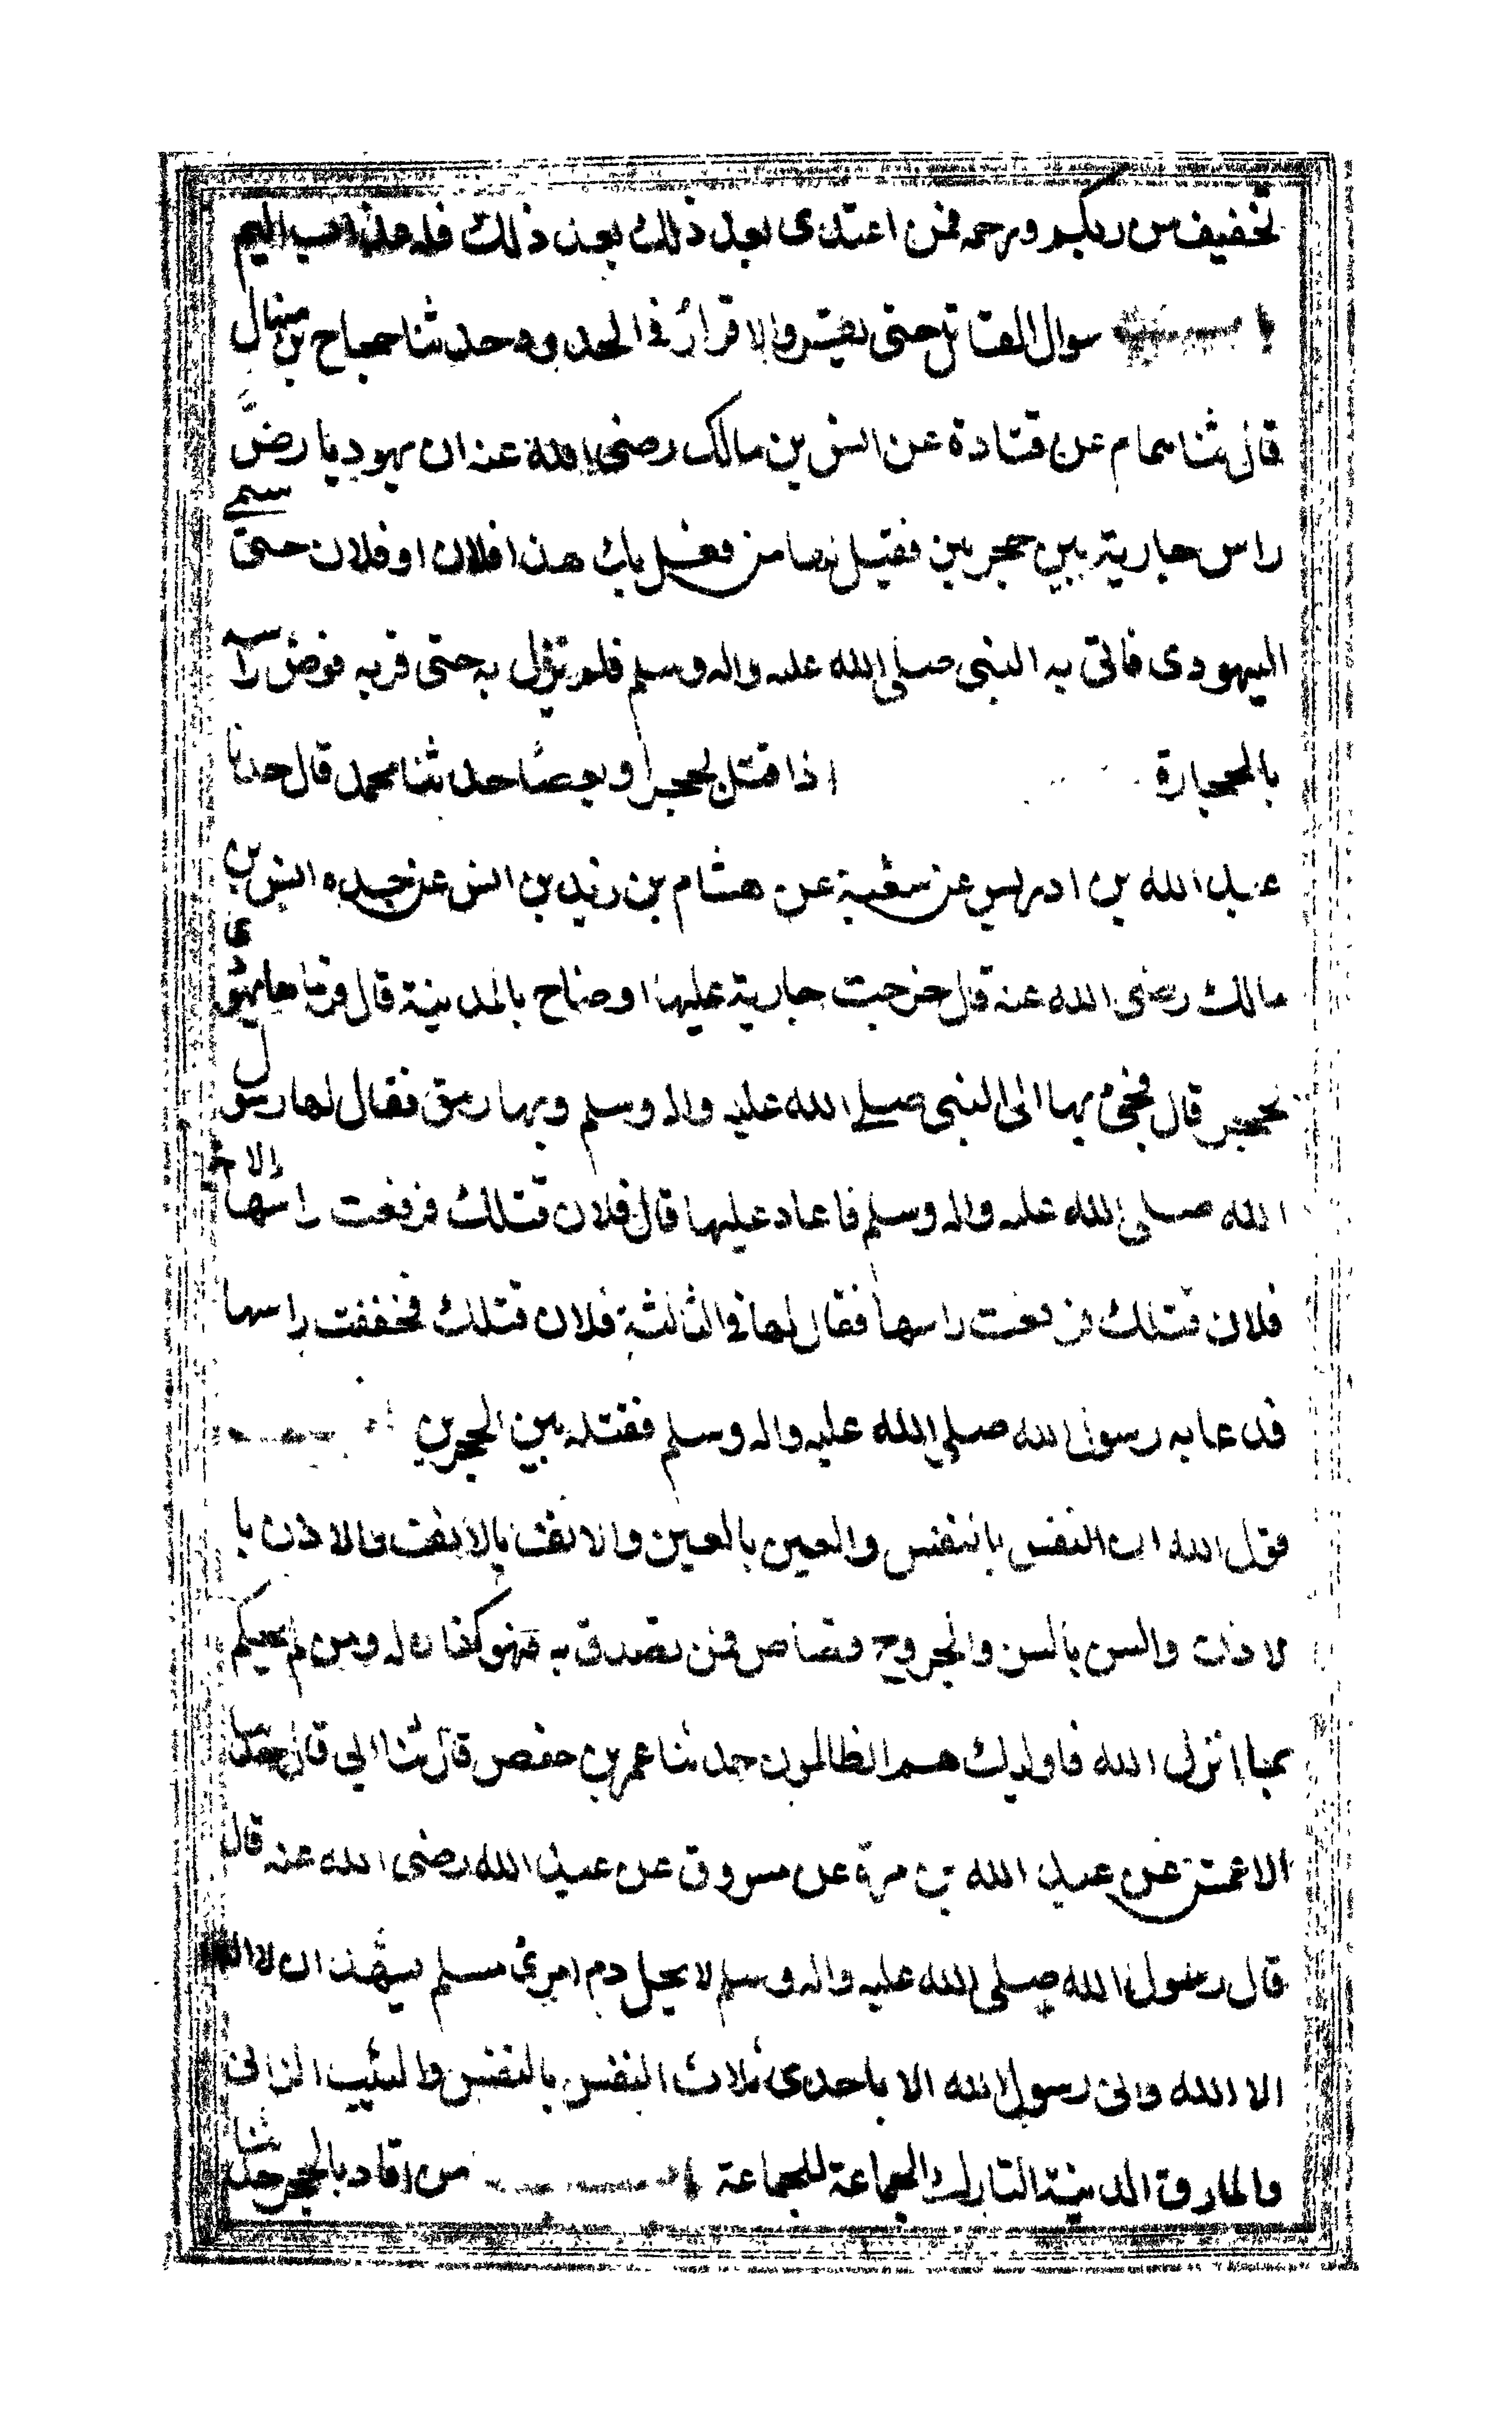 تخفيف من ربكم ورحمه فمن اعتدى بعد ذلك بعد ذلك فله عذاب اليم
باب سوال القاتل حتى يقر والاقرار في الحدود حدثنا حجاج بن منهال
قال ثنا همام عن قتادة عن انس بن مالك رضى الله عنه ان يهوديا رضّ
راس جارية بين حجرين فقيل لها من فعل بك هذا افلان او فلان حتى سمى
اليهودى فاتى به النبى صلى الله عليه واله وسلم فلم يزل به حتى قر به فرض راسه
بالحجارة اذا قتل بحجر او بعصا حدثنا محمد قال حدثنا
عبد الله بن ادريس عن شعبة عن هشام بن زيد بن انس عن جده انس بن
مالك رضى الله عنه قال خرجت جارية عليها اوضاح بالمدينة قال فرماها يهودى
بحجر قال فجئ بها الى النبى صلى الله عليه واله وسلم وبها رمق فقال لها رسول
الله صلى الله عليه واله وسلم فاعاد عليها قال فلان قتلك فرفعت راسها
فلان قتلك فرفعت راسها فقال لها فى الثالثة فلان قتلك فخفضت راسها
فدعا به رسول الله صلى الله عليه واله وسلم فقتله بين الحجرين
قول الله ان النفس بالنفس والعين بالعين والانف بالانف والاذن با
لاذن والسن بالسن والجروح قصاص فمن تصدق به فهو كفارة له ومن لم يحكم
بما انزل الله فاولئك هم الظالمون حدثنا عمر بن حفص قال ثنا ابى قال حدثنا
الاعمش عن عبد الله بن مرة عن مسروق عن عبد الله رضى الله عنه قال
قال رسول الله صلى الله عليه واله وسلم لا يحل دم امرئ مسلم يشهد ان لا اله
الا الله وانى رسول الله الا باحدى ثلاث النفس بالنفس والثيب الزانى
والمارق الدينة التارك الجماعة للجماعة من اقاد بالحجر حدثنا